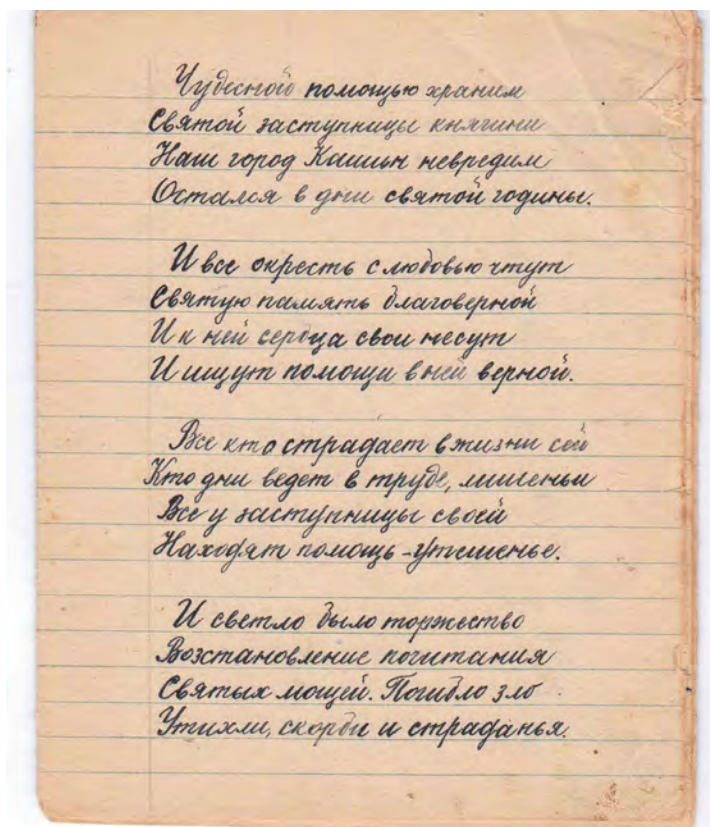 Чудесной помощью храним
Святой заступницы княгини
Наш город Кашин невредим
Остался в дни святой годины.
И все окресть с любовью чтут
Святую память благоверной
И к ней сердца свои несут
И ищут помощи в ней верной.
Все кто страдает в жизни сей
Кто дни ведет в труде, лишеньи
Все у заступницы своей
Находят помощь-утешенье.
И светло было торжество
Возстановление почитания
Святых мощей. Погибло зло
Утихли, скорби и страданья.